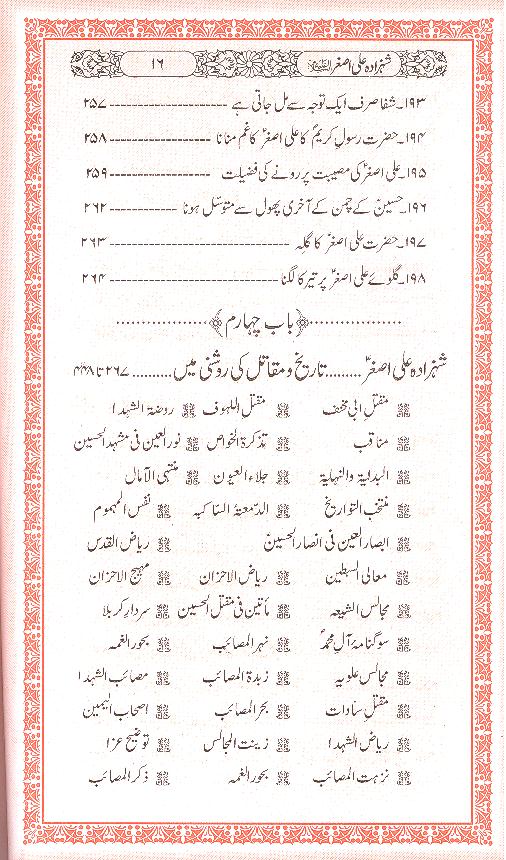 شہزادہ علی اصغرؑ ۱۶
۱۹۳۔ شفا صرف ایک توجہ سے مل جاتی ہے ---------------------- ۲۵۷
۱۹۴۔ حضرت رسولِ کریمؐ کا علی اصغرؑ کا غم منانا ------------------ ۲۵۸
۱۹۵۔ علی اصغرؑ کی مصیبت پر رونے کی فضیلت ----------------- ۲۵۹
۱۹۶۔ حسینؑ کے چمن کے آخری پھول سے متوسّل ہونا ------------ ۲۶۲
۱۹۷۔ حضرت علی اصغرؑ کا گلِہ ------------------------------- ۲۶۳
۱۹۸۔ گلوئے علی اصغرؑ پر تیر کا لگنا ---------------------------- ۲۶۴
.................﴿باب چہارم﴾.................
شہزادہ علی اصغرؑ.........تاریخ و مقاتل کی روشنی میں.........۲۶۷ تا ۴۴۸
مقتل ابی مخنف مقتل اللہوف روضۃ الشہدا
مناقب تذکرۃ الخواص نور العین فی مشہد الحسین
البدایۃ والنہایۃ جلاء العیون منتہی الآمال
منتخب التواریخ الدمعۃ الساکبہ نفس المہموم
ابصار العین فی انصار الحسین ریاض القدس
معالی السبطین ریاض الاحزان مہیج الاحزان
مجالس الشیعہ مأتین فی مقتل الحسین سردارِ کربلا
سوگنامۂ آلِ محمدؐ نہر المصائب بحور الغمہ
مجالس علویہ زبدۃ المصائب مصائب الشہدا
مقتلِ سادات بحر المصائب اصحاب الیمین
ریاض الشہدا زینت المجالس توضیح عزا
نزہت المصائب بحور الغمہ ذکر المصائب